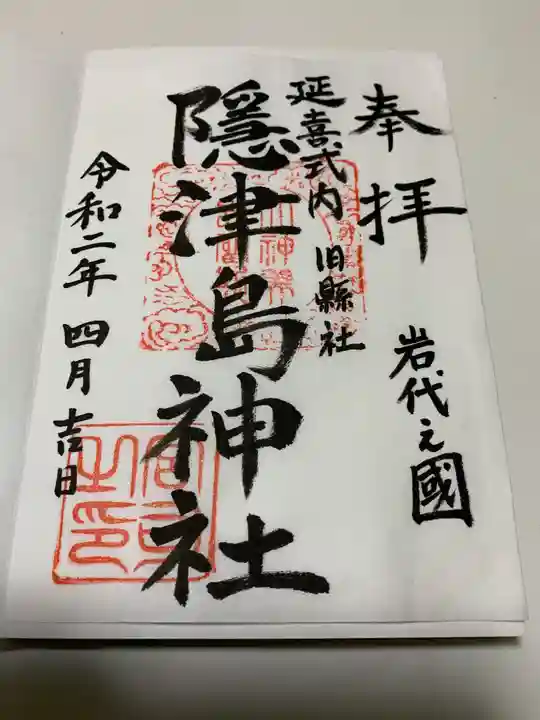 奉拝
岩代之國
延喜式内 旧縣社
隠津島神社
令和二年 四月 吉日
宮司之印